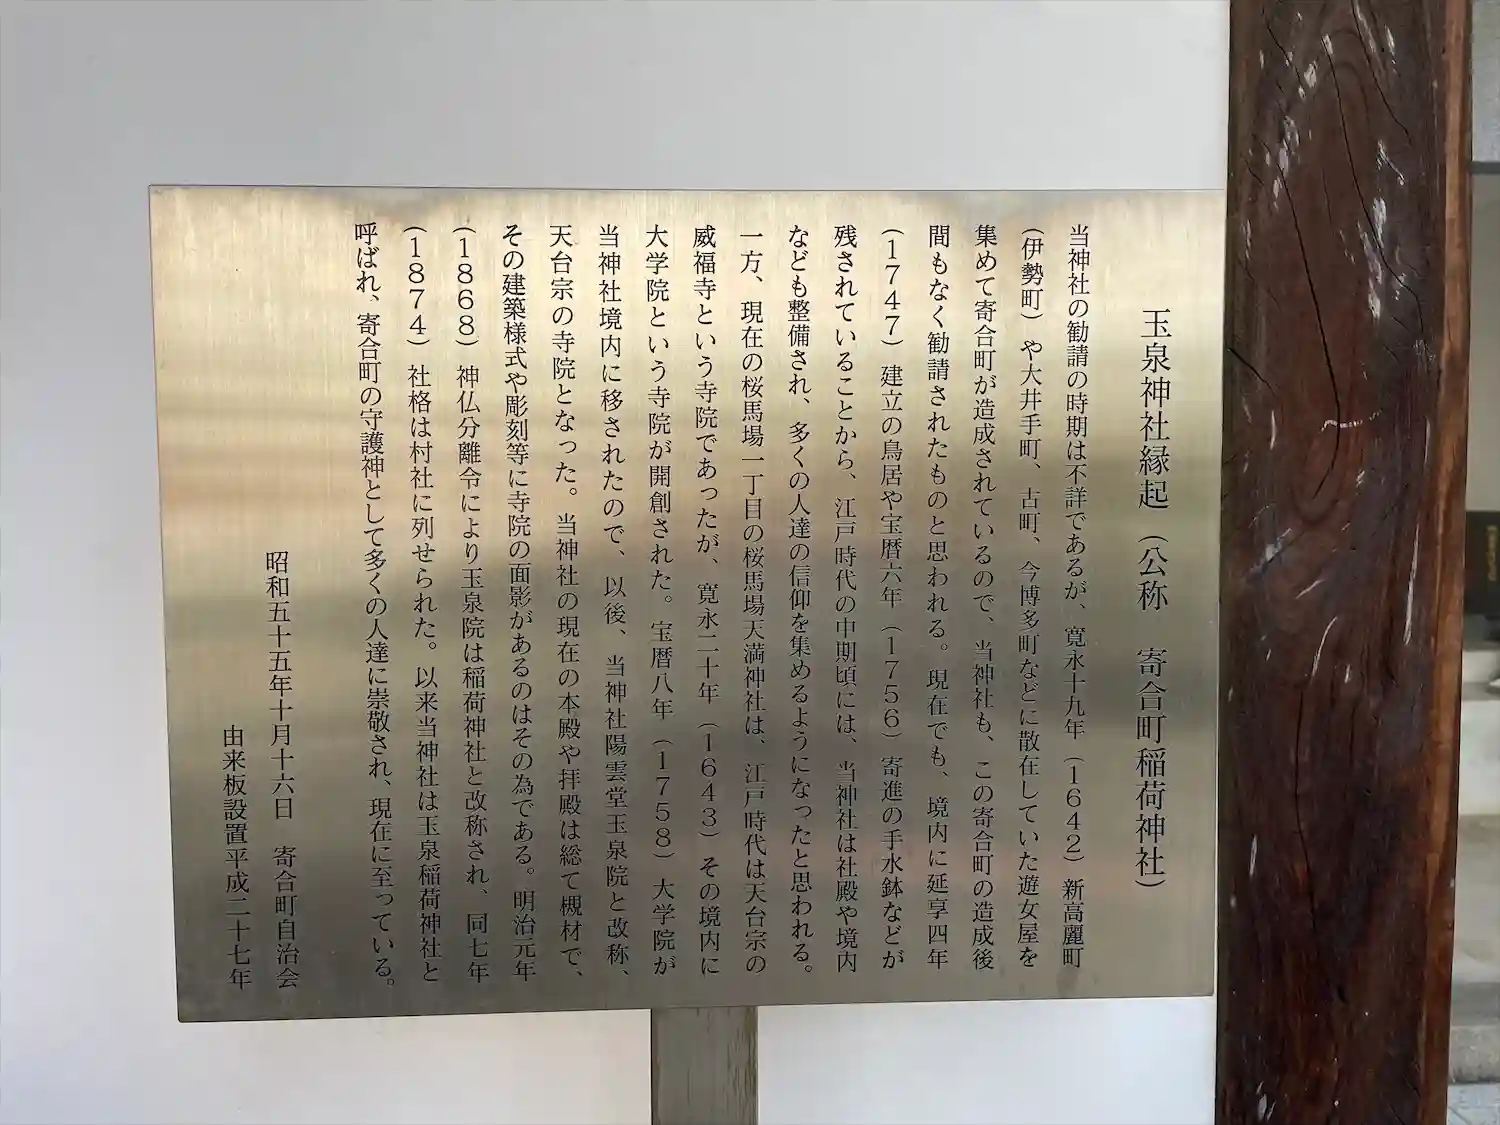 玉泉神社縁起（公称　寄合町稲荷神社）
当神社の勧請の時期は不詳であるが、寛永十九年（1642）新高麗町
（伊勢町）や大井手町、古町、今博多町などに散在していた遊女屋を
集めて寄合町が造成されているので、当神社も、この寄合町の造成後
間もなく勧請されたものと思われる。現在でも、境内に延享四年
（1747）建立の鳥居や宝暦六年（1756）寄進の手水鉢などが
残されていることから、江戸時代の中期頃には、当神社は社殿や境内
なども整備され、多くの人達の信仰を集めるようになったと思われる。
一方、現在の桜馬場一丁目の桜馬場天満神社は、江戸時代は天台宗の
威福寺という寺院であったが、寛永二十年（1643）その境内に
大学院という寺院が開創された。宝暦八年（1758）大学院が
当神社境内に移されたので、以後、当神社陽雲堂玉泉院と改称、
天台宗の寺院となった。当神社の現在の本殿や拝殿は総て槻材で、
その建築様式や彫刻等に寺院の面影があるのはその為である。明治元年
（1868）神仏分離令により玉泉院は稲荷神社と改称され、同七年
（1874）社格は村社に列せられた。以来当神社は玉泉稲荷神社と
呼ばれ、寄合町の守護神として多くの人達に崇敬され、現在に至っている。
昭和五十五年十月十六日　寄合町自治会
由来板設置平成二十七年